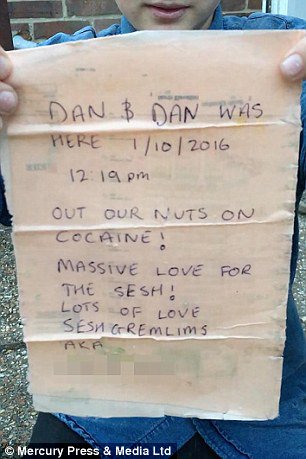 DAN & DAN WAS
HERE 1/10/2016
12:19pm
OUT OUR NUTS ON
COCAINE!
MASSIVE LOVE FOR
THE SESH!
LOTS OF LOVE
SESH GREMLIMS
AKA
© Mercury Press & Media Ltd